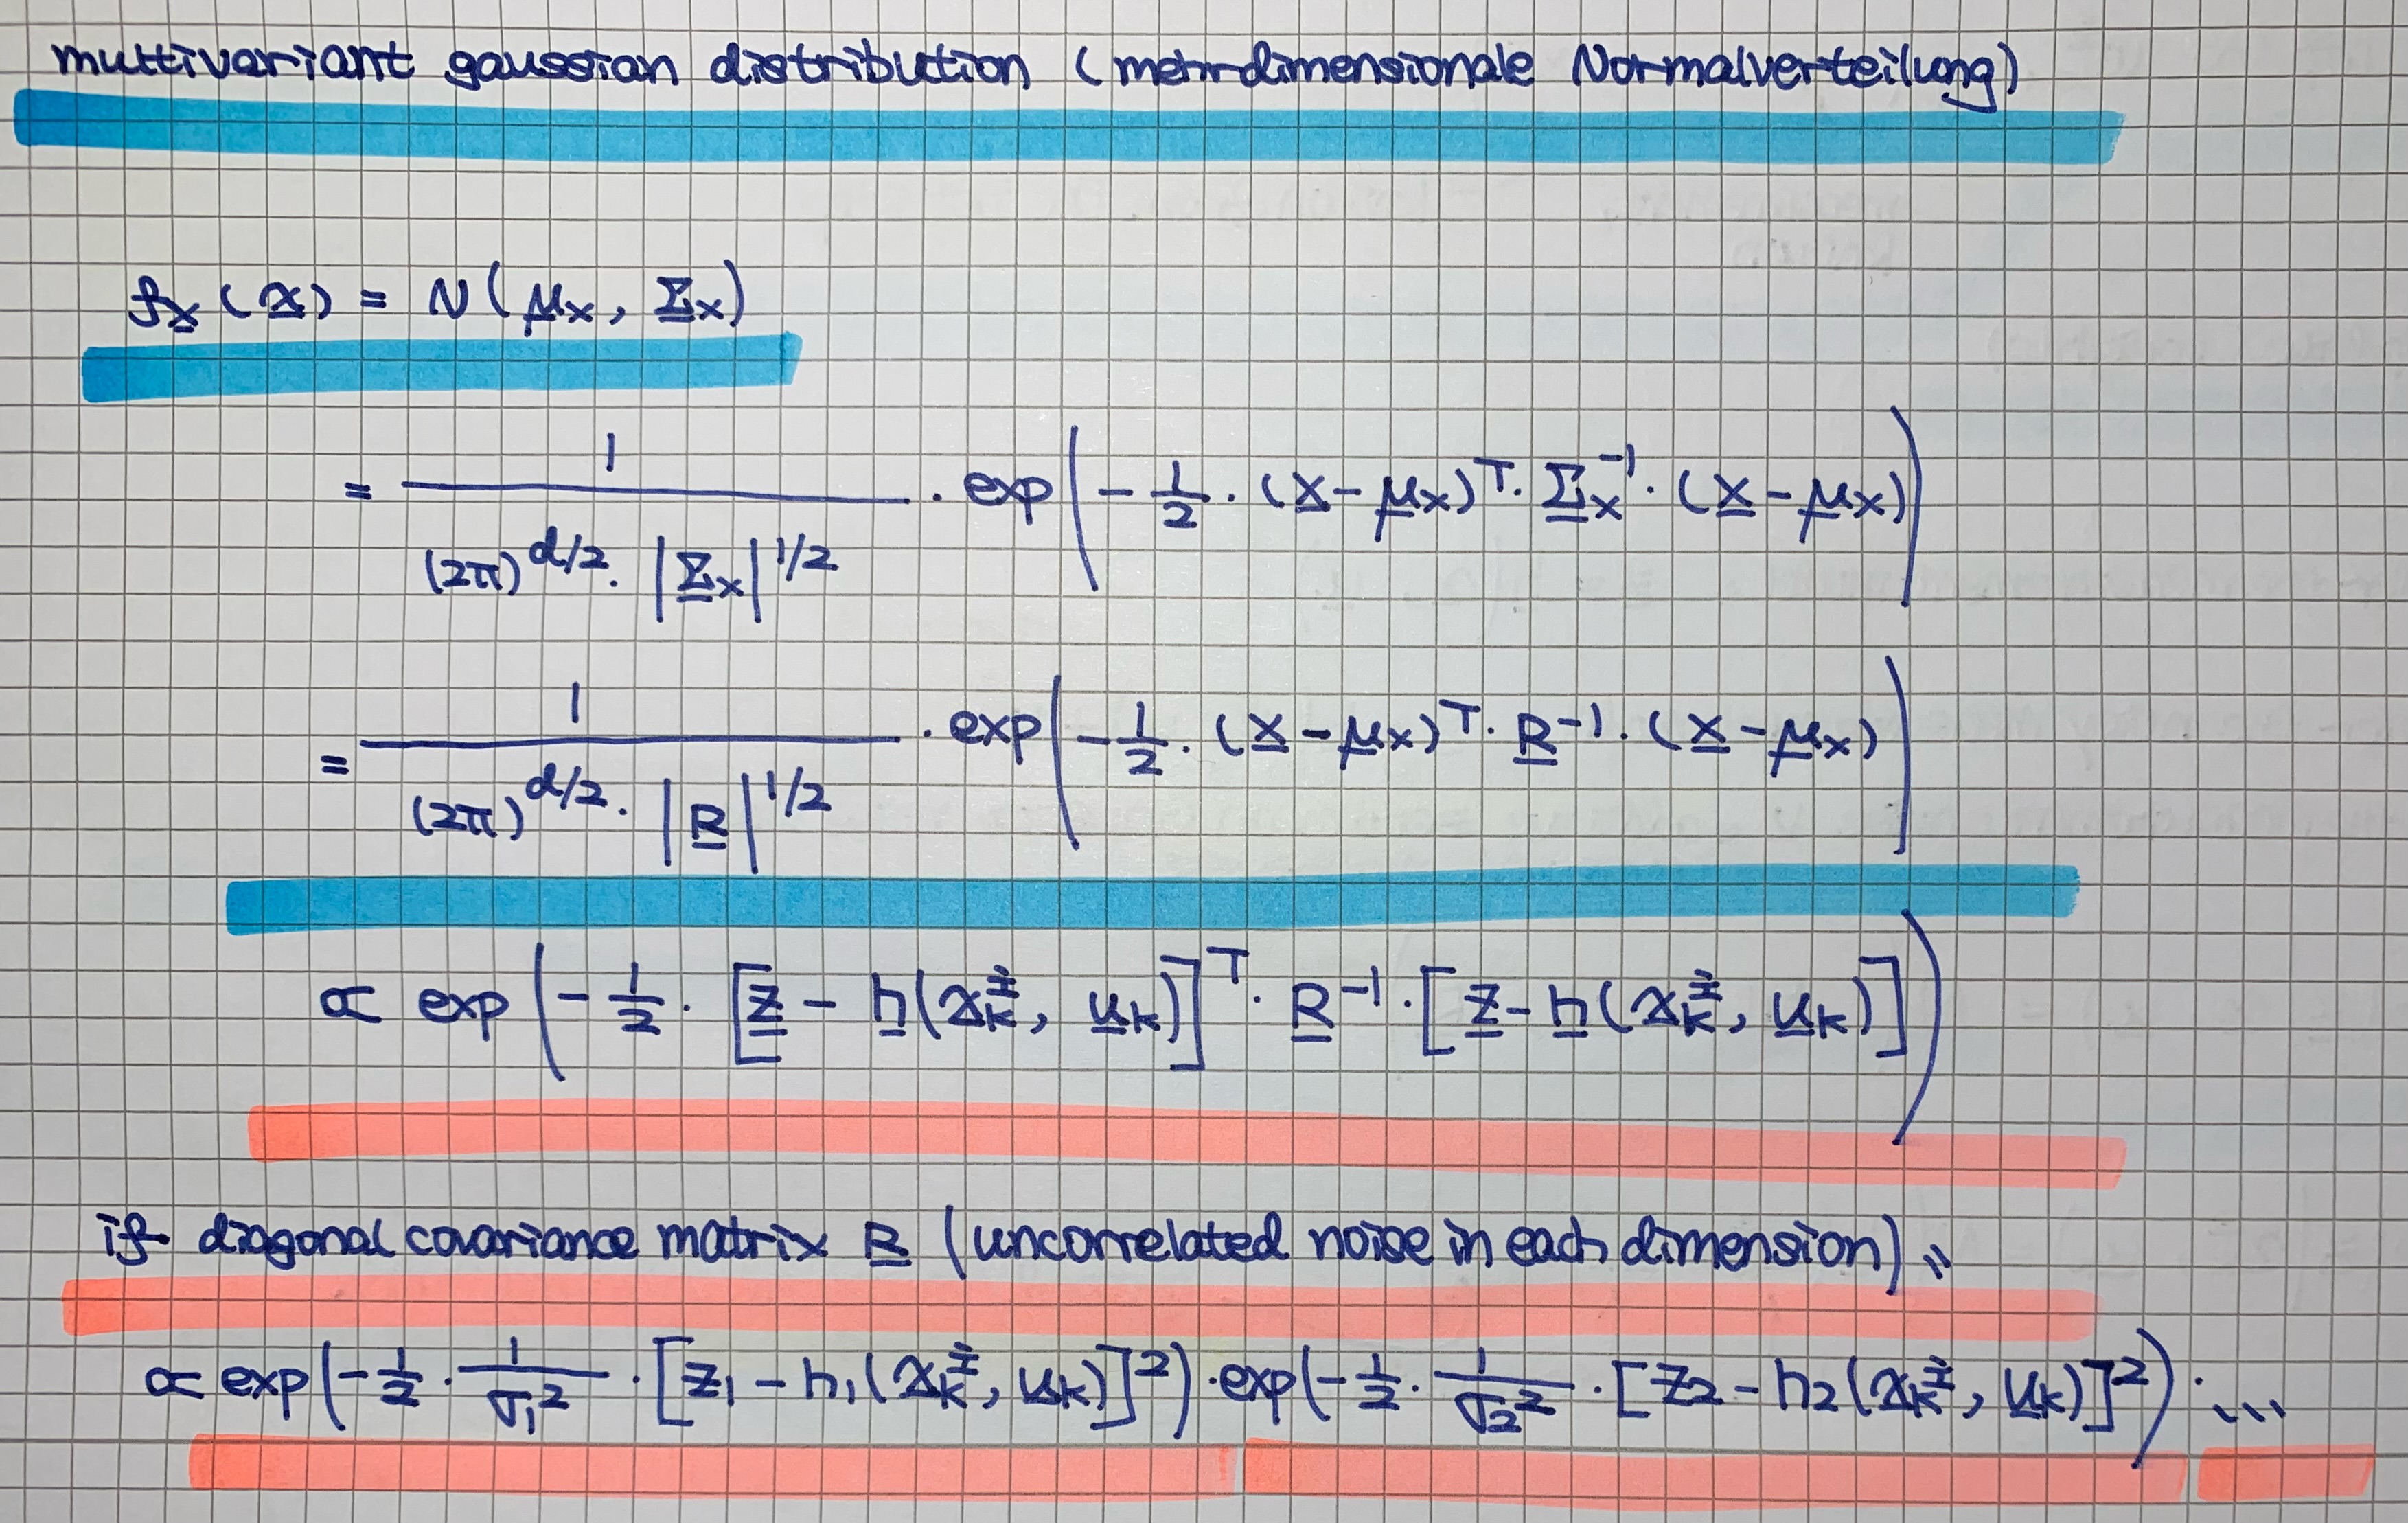 multivariant gaussian distribution (mehrdimensionale Normalverteilung)
f_x̲ (x̲) = N(μ̲_x, Σ̲_x)
= 1 / ((2π)^{d/2} · |Σ̲_x|^{1/2}) · exp(-1/2 · (x̲ - μ̲_x)^T · Σ̲_x^{-1} · (x̲ - μ̲_x))
= 1 / ((2π)^{d/2} · |R̲|^{1/2}) · exp(-1/2 · (x̲ - μ̲_x)^T · R̲^{-1} · (x̲ - μ̲_x))
∝ exp(-1/2 · [z̲ - h̲(x̲_k^i, u̲_k)]^T · R̲^{-1} · [z̲ - h̲(x̲_k^i, u̲_k)])
if diagonal covariance matrix R̲ (uncorrelated noise in each dimension),,
∝ exp(-1/2 · 1/σ_1^2 · [z_1 - h_1(x̲_k^i, u̲_k)]^2) · exp(-1/2 · 1/σ_2^2 · [z_2 - h_2(x̲_k^i, u̲_k)]^2) · ...